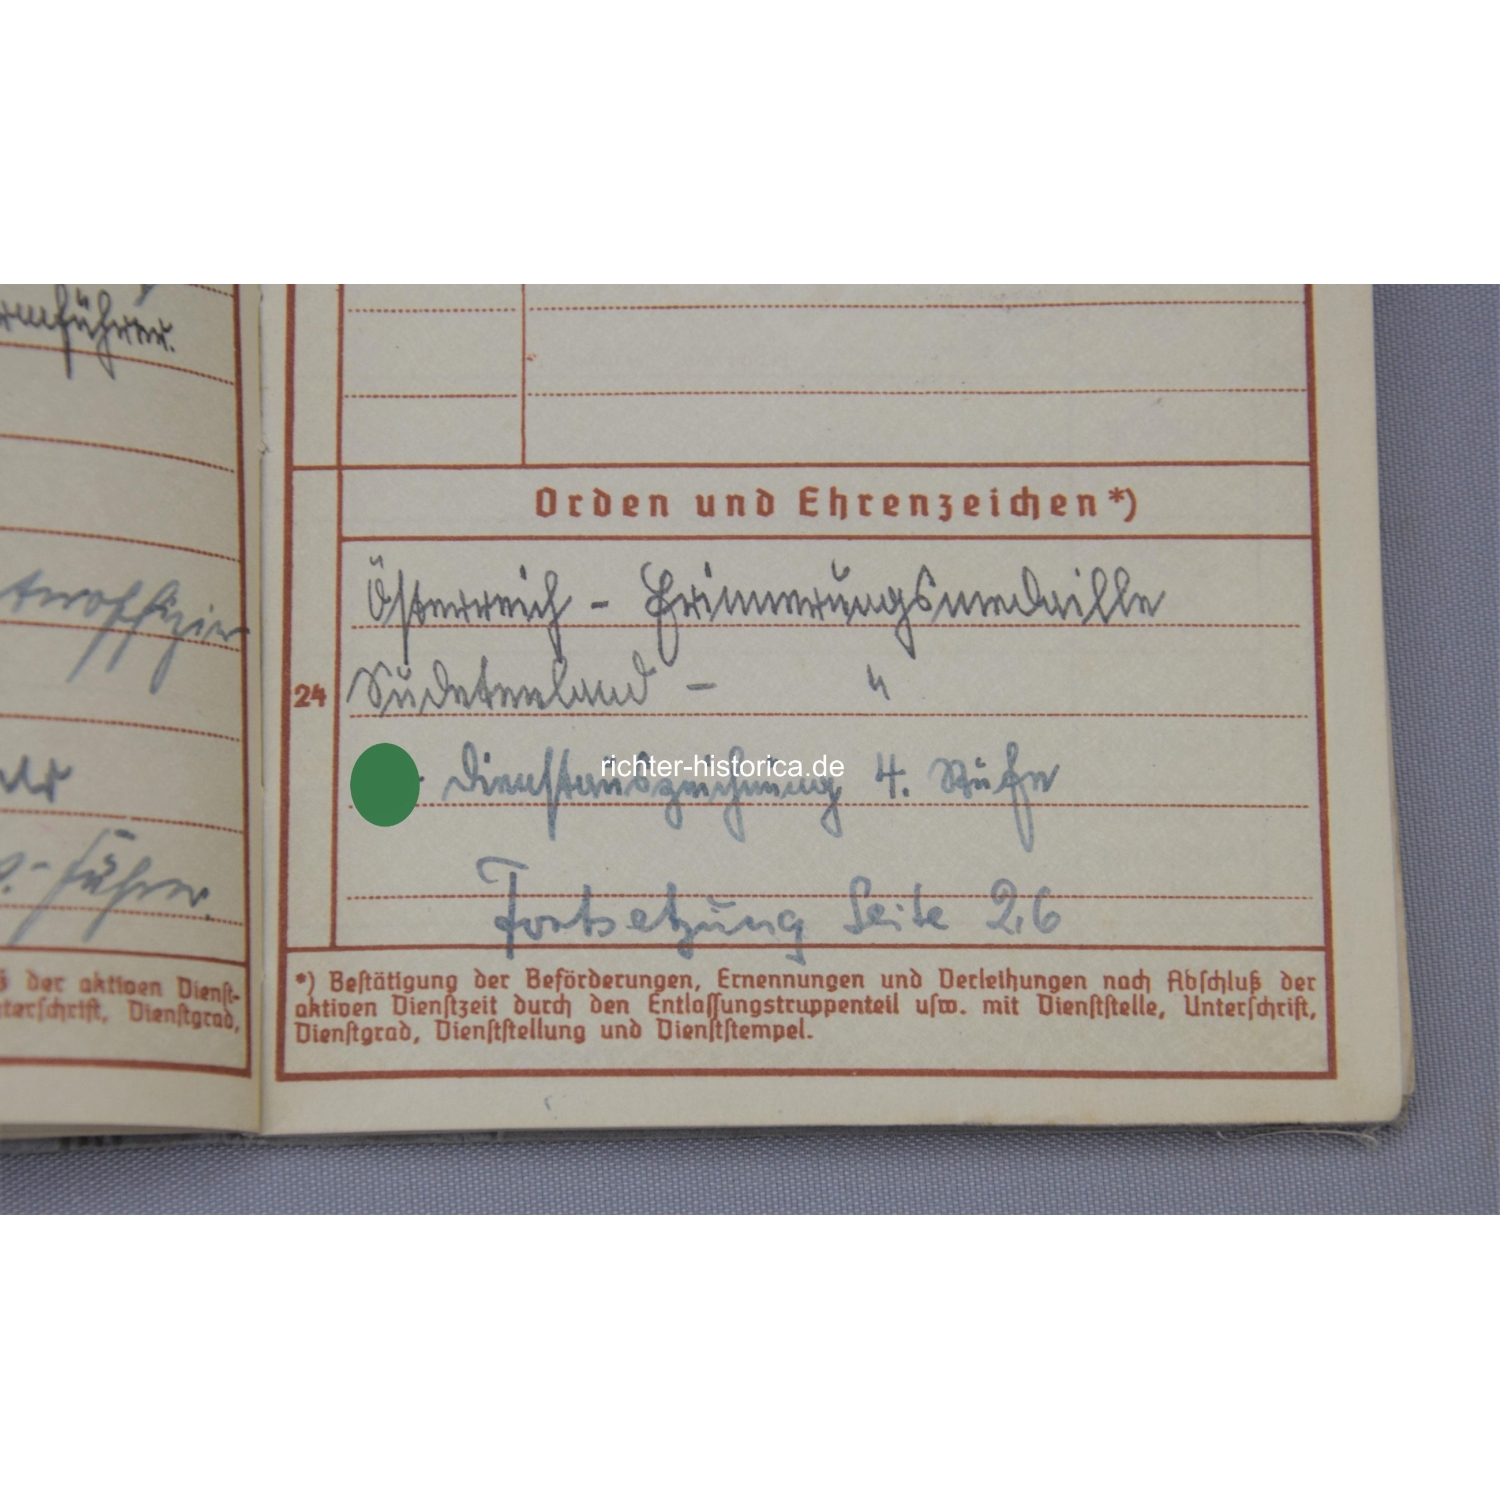 führer.
Orden und Ehrenzeichen *)
Österreich - Erinnerungsmedaille
24 Sudetenland - "
Dienstauszeichnung 4. Stufe
richter-historica.de
Fortsetzung Seite 26
*) Bestätigung der Beförderungen, Ernennungen und Verleihungen nach Abschluß der
aktiven Dienstzeit durch den Entlassungstruppenteil usw. mit Dienststelle, Unterschrift,
Dienstgrad, Dienststellung und Dienststempel.
-Führer.
der aktiven Dienst-
Dienstgrad,